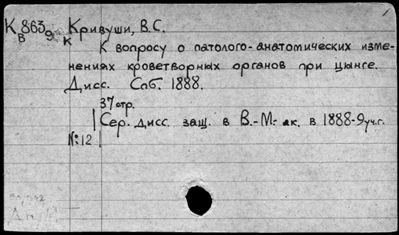 К 863 Кривуши, В.С.
В 9 к
К вопросу о патолого-анатомических изме-
нениях кроветворных органов при цынге.
Дисс. Спб. 1888.
37 стр.
Сер. дисс. защ. в В.-М. ак. в 1888-9 уч.г.
№:12